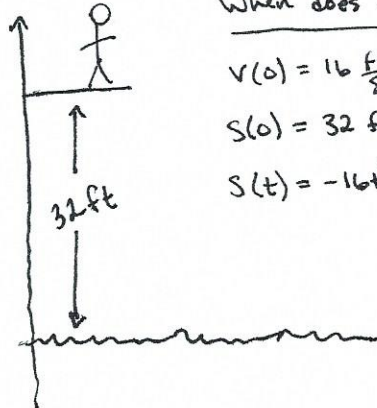 When does
v(0) = 16 f
s(0) = 32 f
s(t) = -16t
32ft